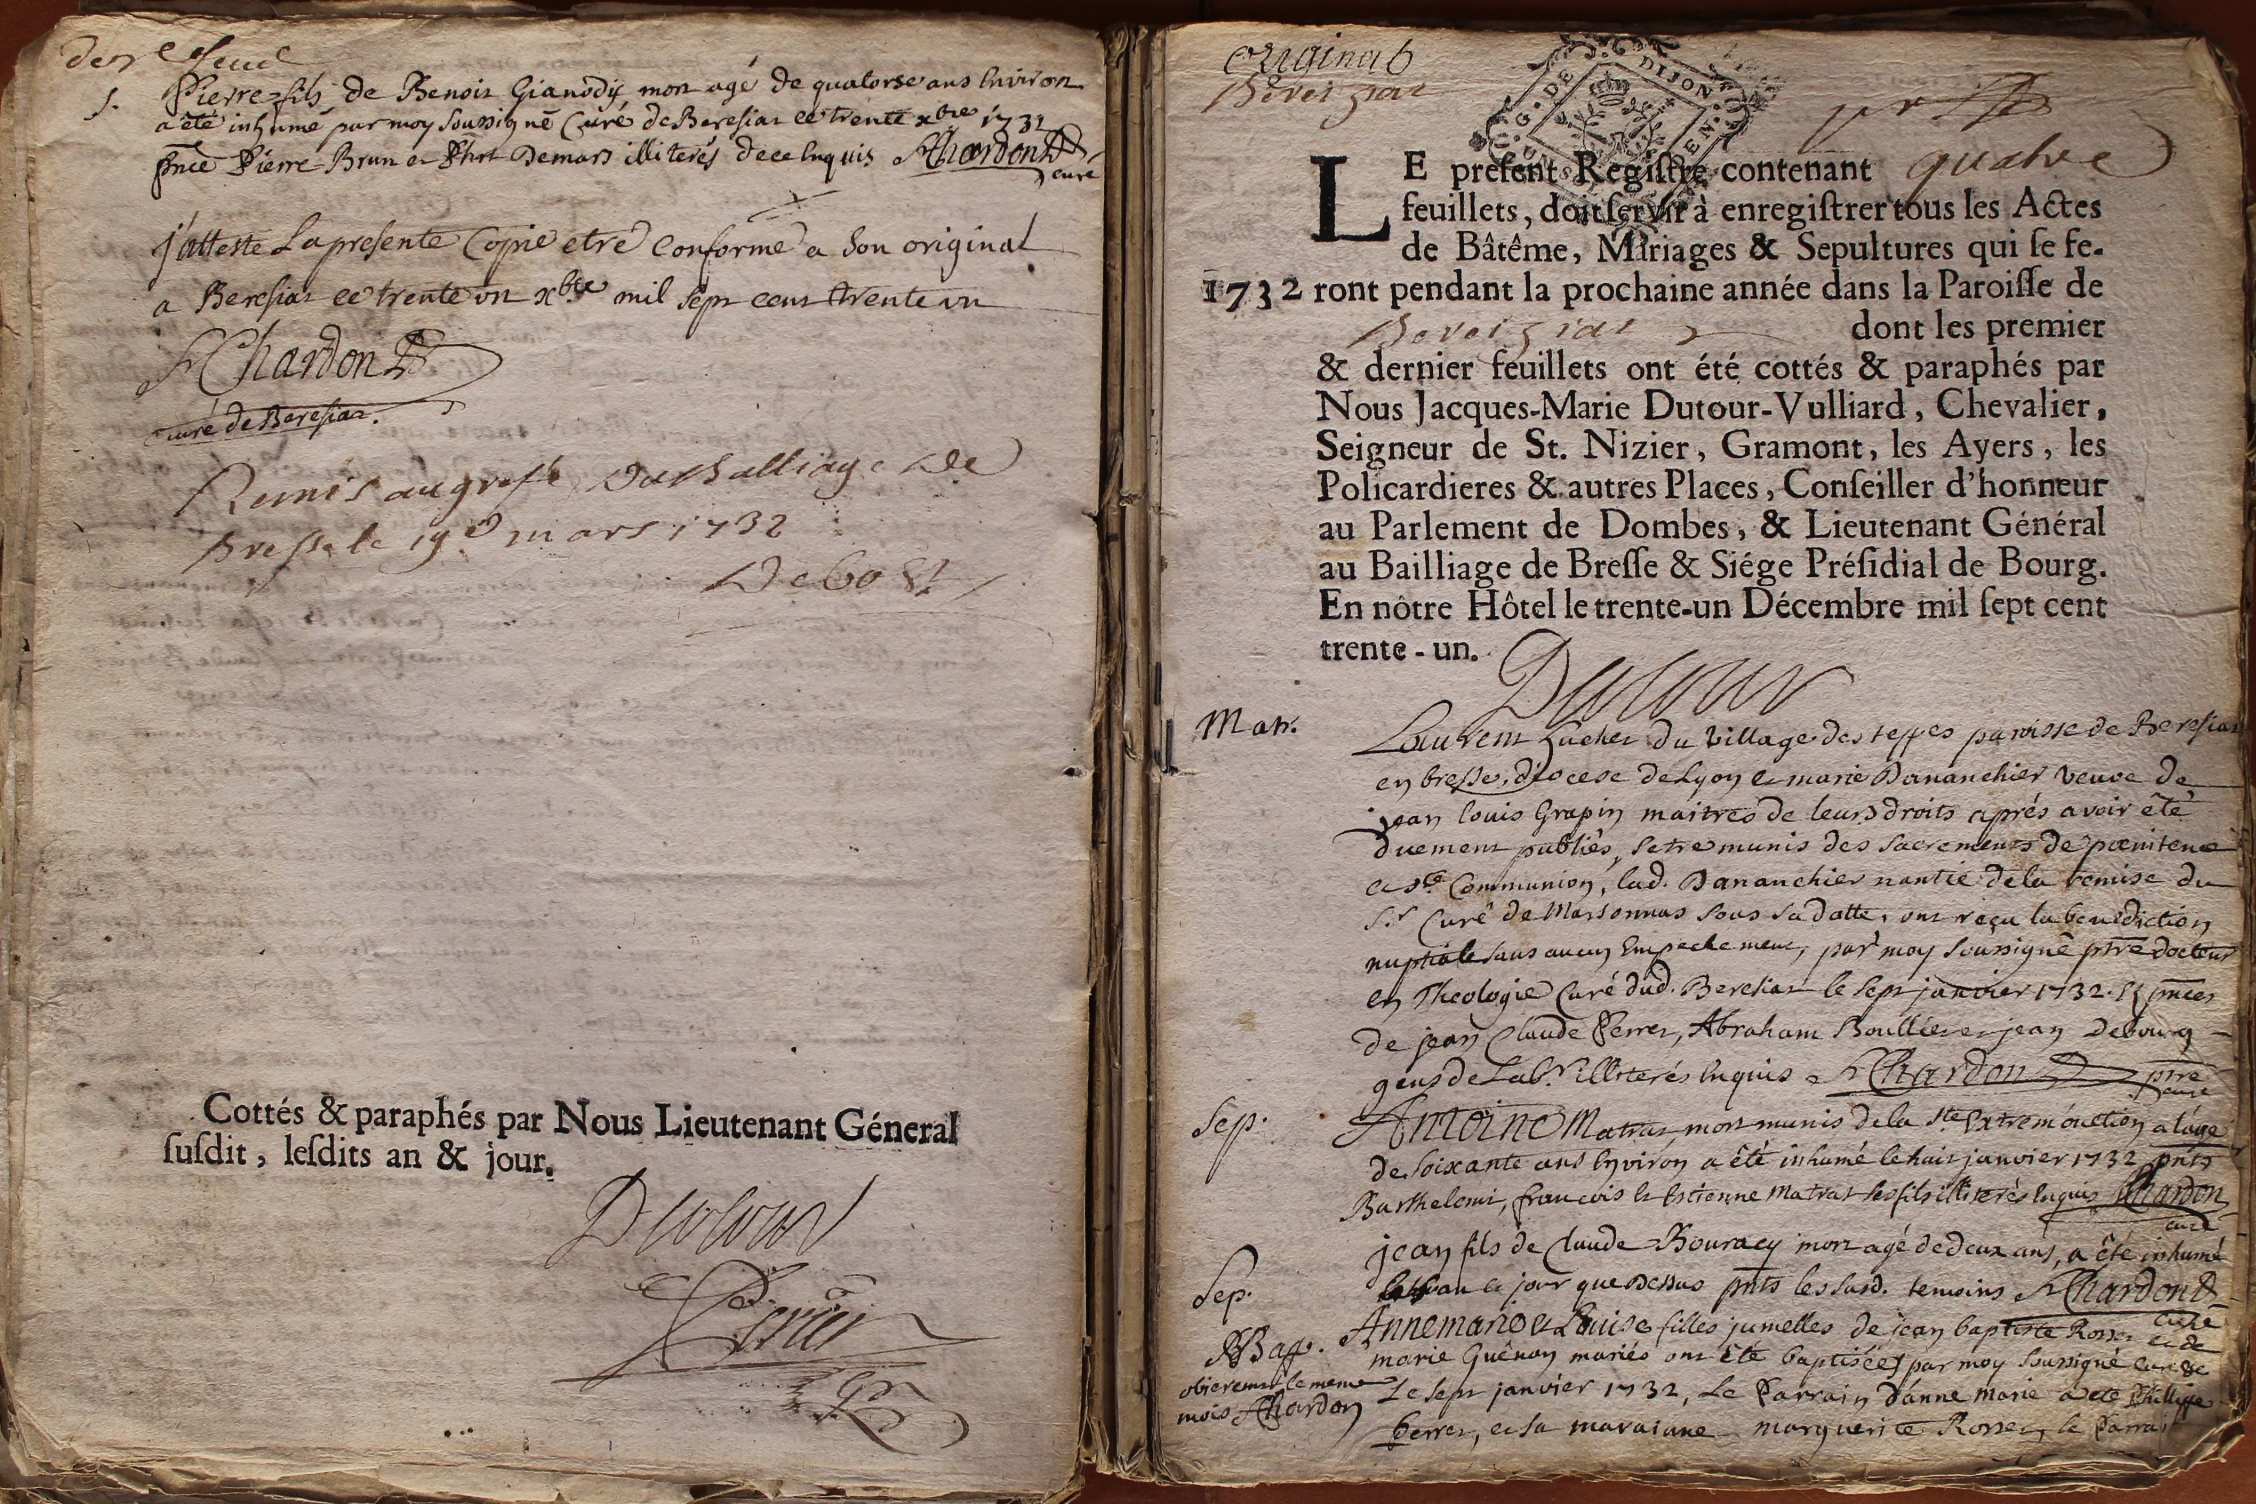 der.e feuil
S. Pierre fils de Benoit Gianody mort agé de quatorse ans Environ
a êté inhumé par moy soussigné Curé de Beresiat ce trente xbre 1731
pnce Pierre Brun et Phrt Demars illiterés de ce Enquis Chardon
curé
j'atteste La presente Copie etre Conforme a Son original
a Beresiat ce trente un xbre mil sept cent trente un
Chardon
curé de Beresiat.
Remis au greffe Du Balliage de
Bresse le 19e mars 1732
Debost
Cottés & paraphés par Nous Lieutenant Géneral
suſdit, leſdits an & jour.
Dutour
Perier
original
Bereiziat
G. DE DIJON
LE preſent Regiſtre contenant quatre
feuillets, doit ſervir à enregiſtrer tous les Actes
de Bâtême, Mariages & Sepultures qui ſe fe-
1732 ront pendant la prochaine année dans la Paroiſſe de
Bereiziat dont les premier
& dernier feuillets ont été cottés & paraphés par
Nous Jacques-Marie Dutour-Vulliard, Chevalier,
Seigneur de St. Nizier, Gramont, les Ayers, les
Policardieres & autres Places, Conſeiller d'honneur
au Parlement de Dombes, & Lieutenant Général
au Bailliage de Breſſe & Siége Préſidial de Bourg.
En nôtre Hôtel le trente-un Décembre mil ſept cent
trente-un.
Dutour
Mar. Laurent Fucher du village des teppes paroisse de Beresiat
en bresse, diocese de Lyon et marie Dananchier veuve de
jean Louis Grapin maitres de leurs droits aprés avoir êté
duement publiés, setre munis des sacrements de pœnitence
et ste Communion, lad. Dananchier nantie de la remise du
Sr Curé de Marsonnas sous sa datte, ont reçu la benediction
nuptiale sans aucun Empechement, par moy soussigné ptre docteur
en Theologie Curé dud. Beresiat le sept janvier 1732. Es pnces
de jean Claude Perret, Abraham Boullier et jean Debourg
gens de Labr illiterés Enquis Chardon ptre
curé
Sep. Antoine Matras, mort munis de la ste Extremonction a lâge
de soixante ans Environ a êté inhumé le huit janvier 1732 pnts
Barthelemi, françois Et Estienne Matras ses fils illiterés Enquis Chardon
curé
Sep. jean fils de Claude Bouracy mort agé de deux ans, a êté inhumé
le jour que Dessus pnts les susd. temoins Chardon
curé
Bap. Annemarie et Louise filles jumelles de jean baptiste Rosset et de
marie Guênon mariés ont êté baptisées par moy soussigné curé
obierent le meme
mois Chardon
Le sept janvier 1732, Le Parrain d'anne marie a eté Philippe
Perret, et sa maraine marguerite Rosset, le Parrai